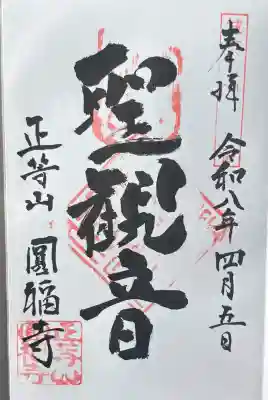 奉拝 令和八年四月五日
聖観音
正等山 圓福寺